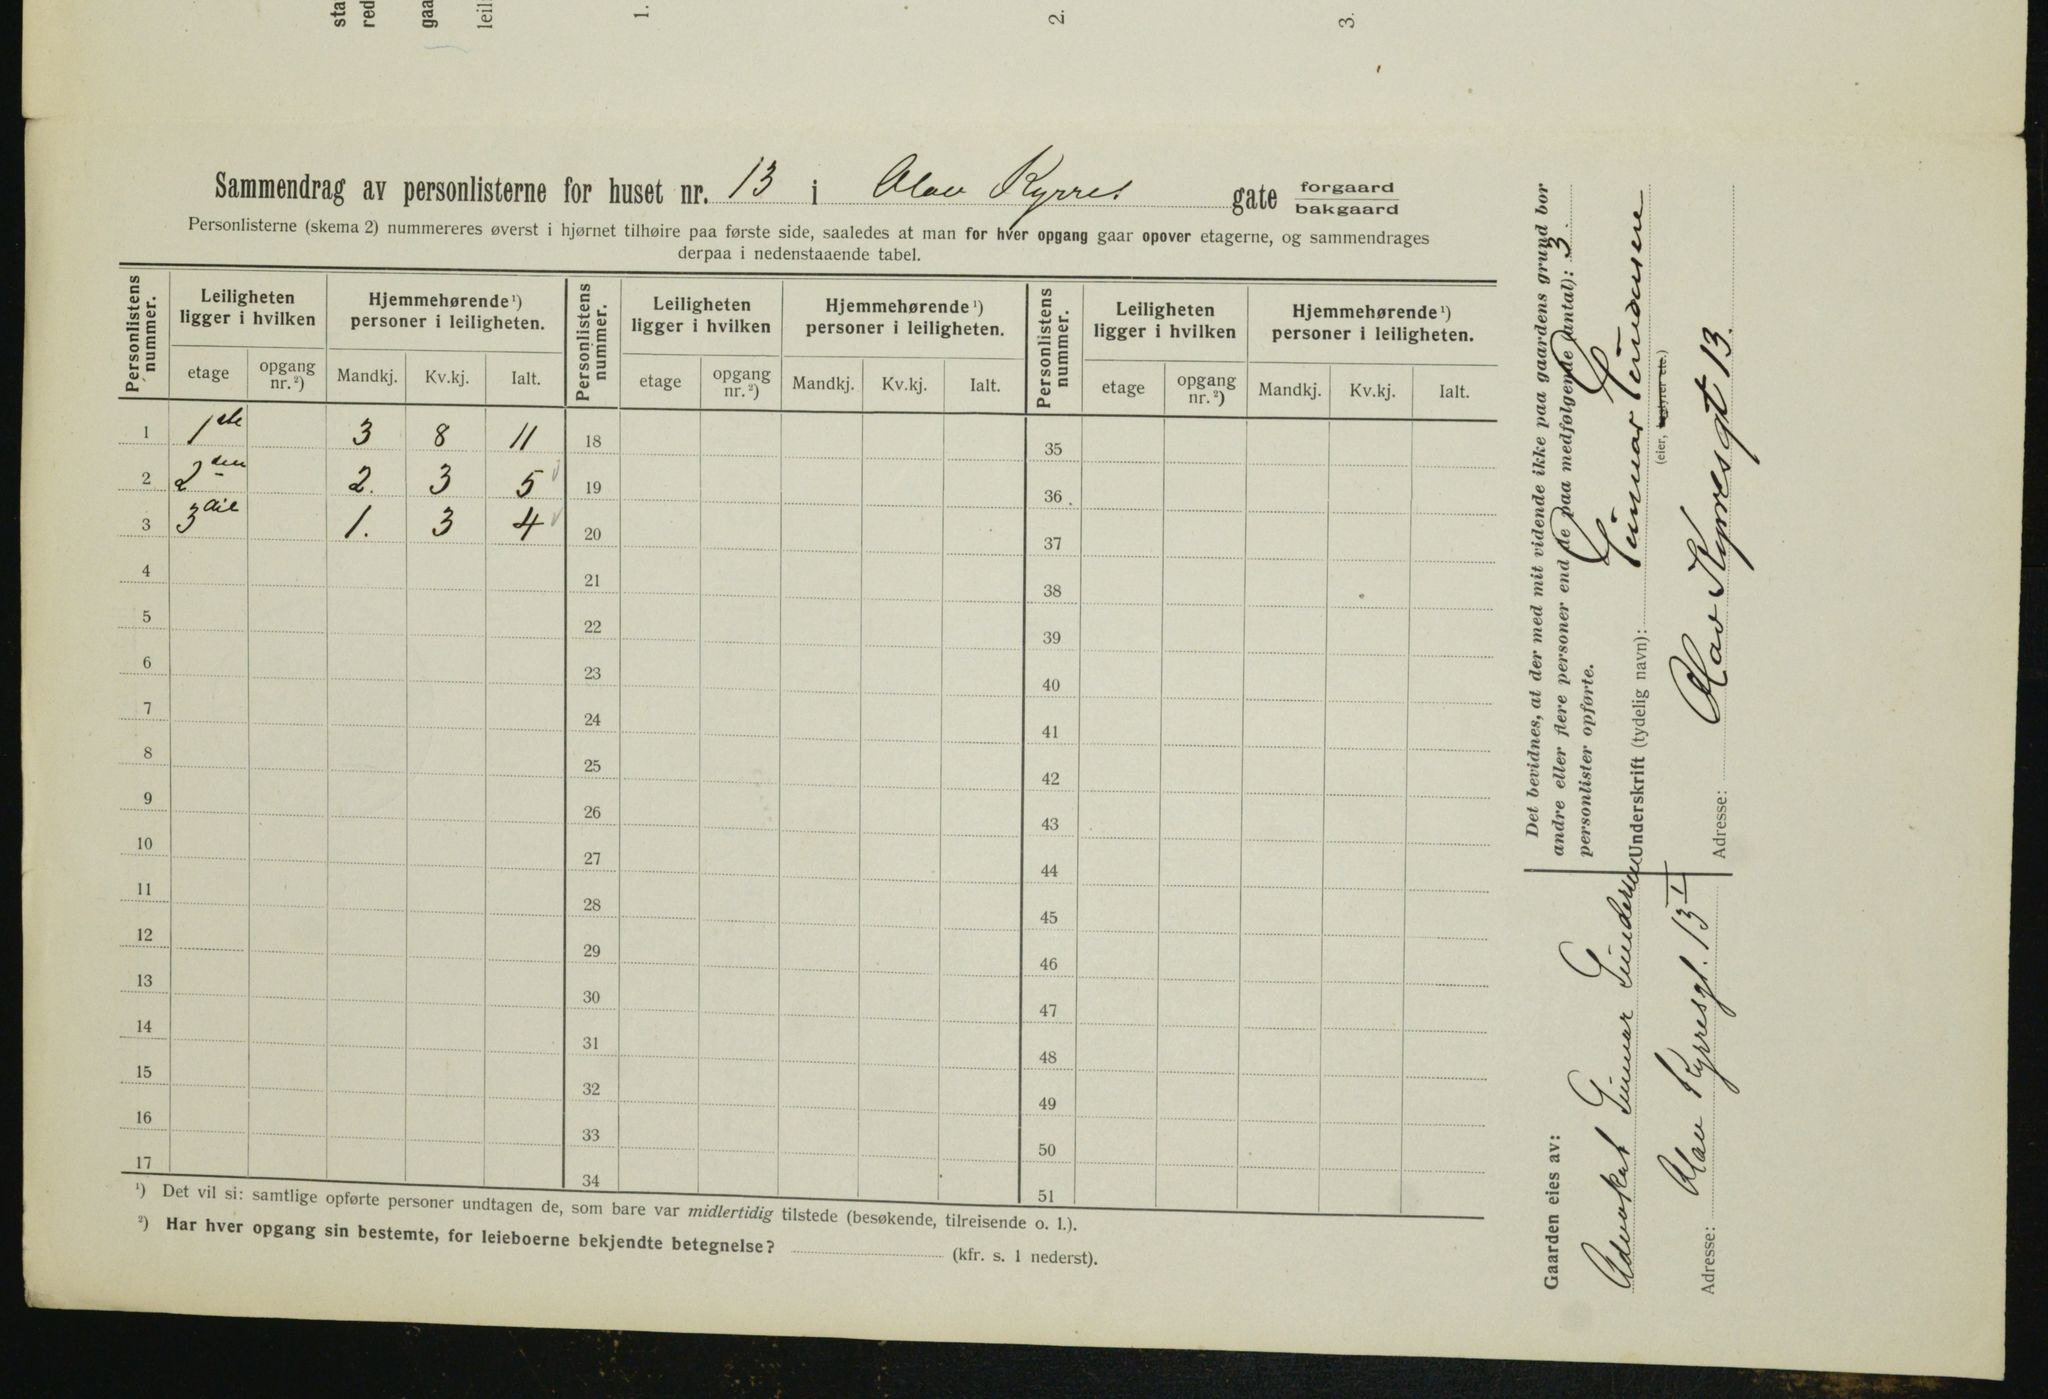 sta
red
gaa
leil
1.
2.
3.
Sammendrag av personlisterne for huset nr. 13 i Olav Kyrres gate forgaard
bakgaard
Personlisterne (skema 2) nummereres øverst i hjørnet tilhøire paa første side, saaledes at man for hver opgang gaar opover etagerne, og sammendrages
derpaa i nedenstaaende tabel.
Personlistens nummer. Leiligheten ligger i hvilken Hjemmehørende¹) personer i leiligheten. Personlistens nummer. Leiligheten ligger i hvilken Hjemmehørende¹) personer i leiligheten. Personlistens nummer. Leiligheten ligger i hvilken Hjemmehørende¹) personer i leiligheten.
etage opgang nr.²) Mandkj. Kv.kj. Ialt. etage opgang nr.²) Mandkj. Kv.kj. Ialt. etage opgang nr.²) Mandkj. Kv.kj. Ialt.
1 1ste 3 8 11 18 35
2 2den 2. 3 5 19 36
3 3die 1. 3 4 20 37
4 21 38
5 22 39
6 23 40
7 24 41
8 25 42
9 26 43
10 27 44
11 28 45
12 29 46
13 30 47
14 31 48
15 32 49
16 33 50
17 34 51
¹) Det vil si: samtlige opførte personer undtagen de, som bare var midlertidig tilstede (besøkende, tilreisende o. l.).
²) Har hver opgang sin bestemte, for leieboerne bekjendte betegnelse? (kfr. s. 1 nederst).
Gaarden eies av:
Advokat Einar Gundersen
Adresse: Olav Kyrresgt. 13 I
Det bevidnes, at der med mit vidende ikke paa gaardens grund bor
andre eller flere personer end de paa medfølgende (antal): 3
personlister opførte.
Underskrift (tydelig navn): Einar Gundersen
(eier, bestyrer etc.)
Adresse: Olav Kyrresgt 13.